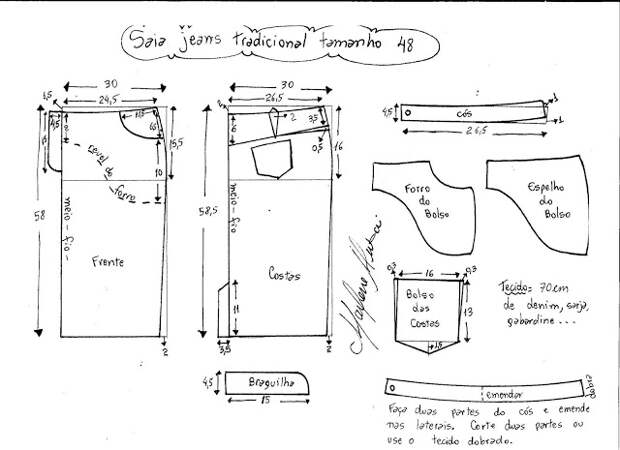 Saia jeans tradicional tamanho 48
30
24,5
1,5
4,5
2
15,5
10
revel do
forro
meio-fio
58
Frente
2
30
26,5
2
3,5
6
0,5
16
meio-fio
58,5
Costas
11
3,5
2
4,5
cós
1
1
26,5
Forro
do
Bolso
Espelho
do
Bolso
0,3
16
0,3
Bolso
das
Costas
13
1,5
Tecido= 70cm
de denim, sarja,
gabardine...
Marlene Mukai
4,5
Braguilha
15
emendar
dobra
Faça duas partes do cós e emende
nas laterais. Corte duas partes ou
use o tecido dobrado.